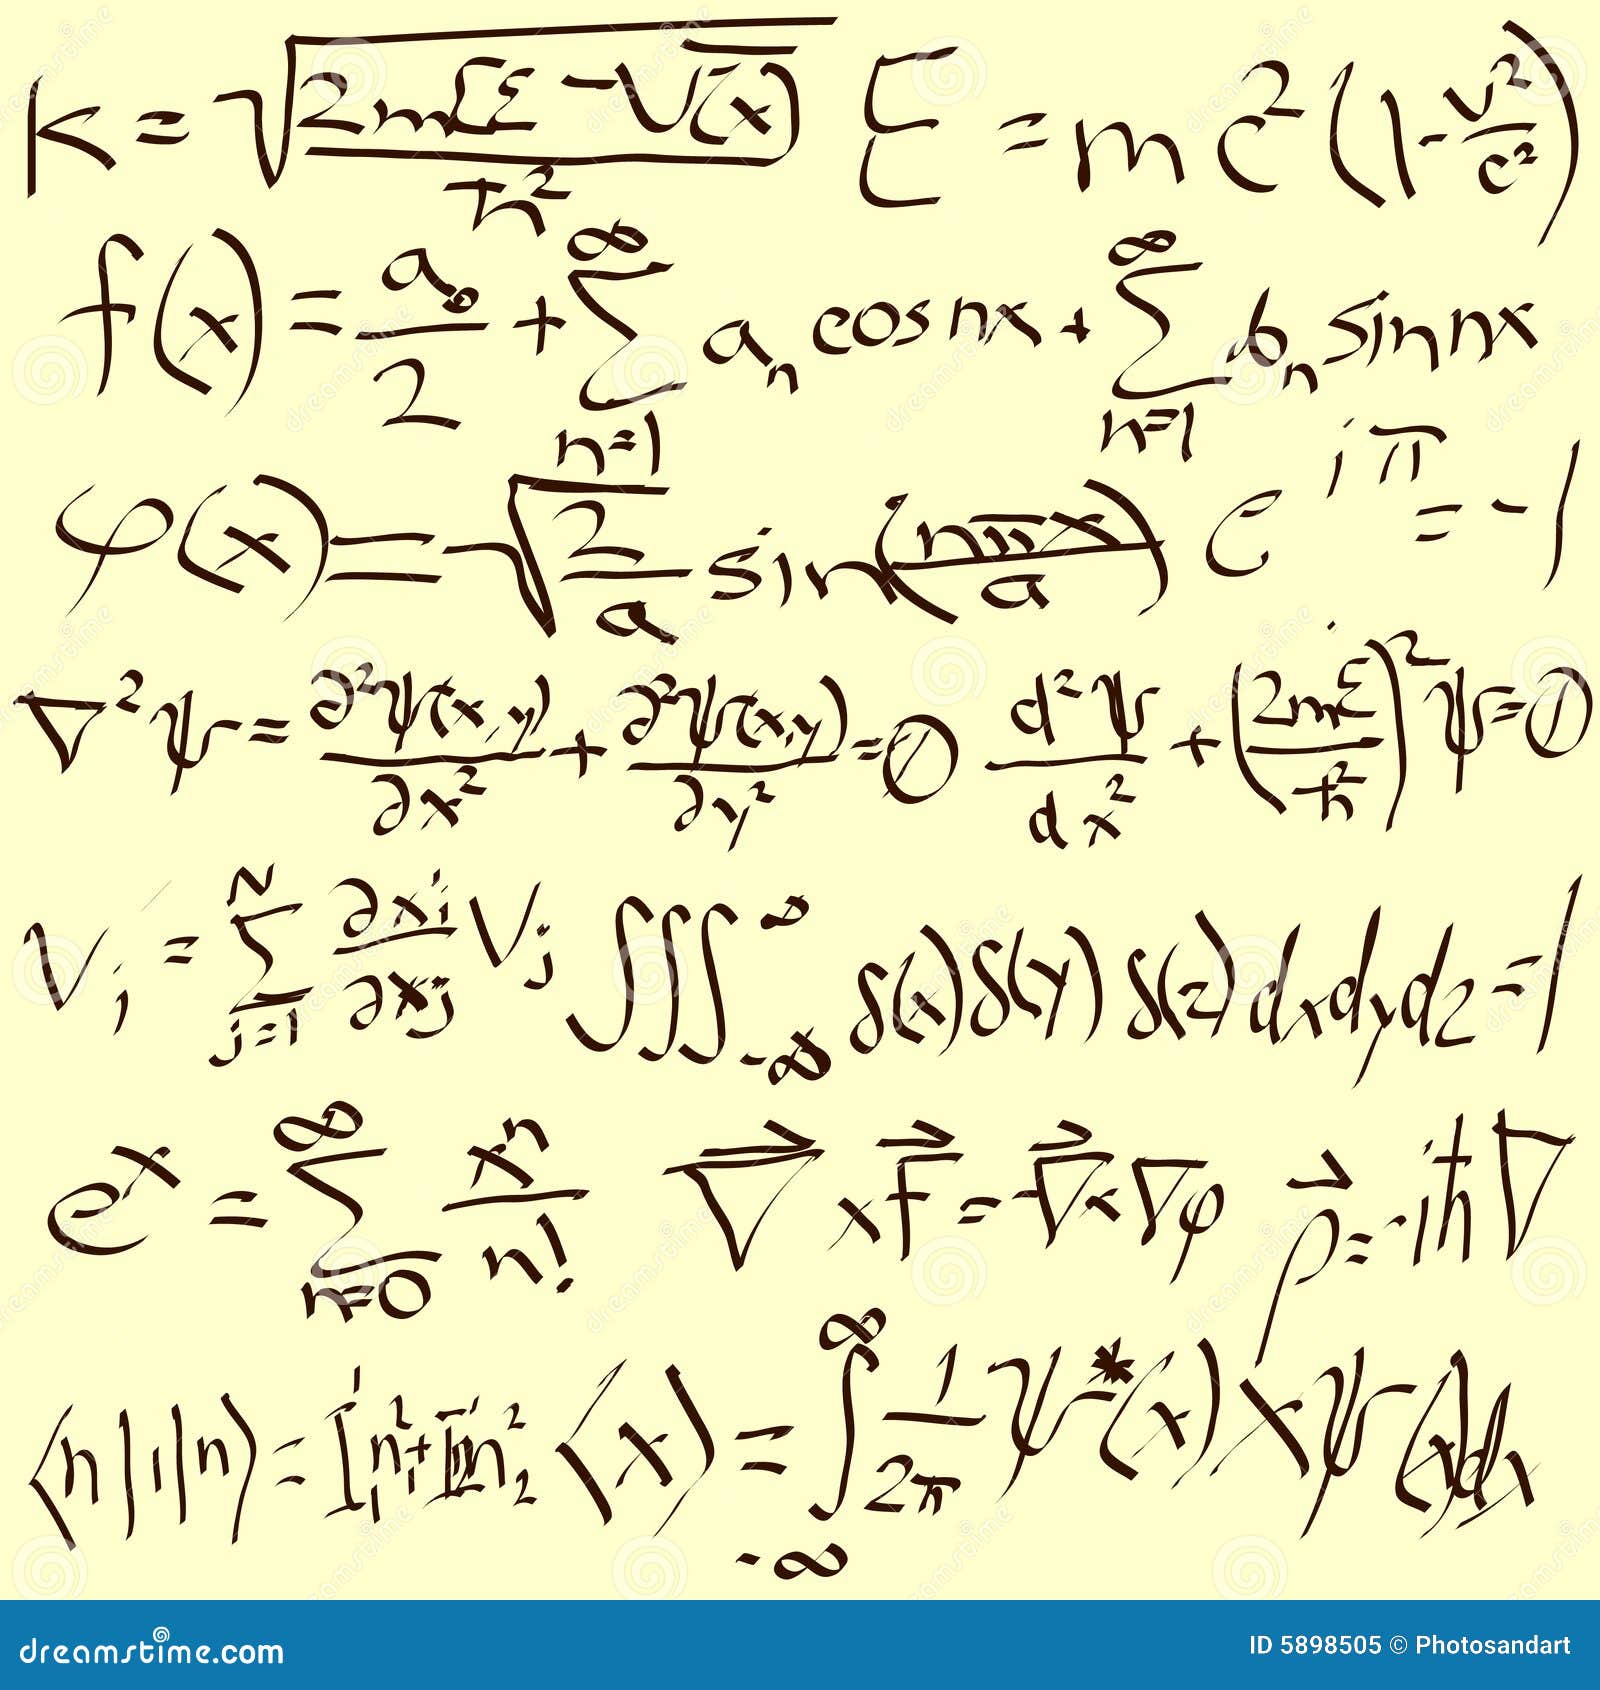 k = √(2m[E - V(x)] / ħ²) E = mc²(1 - v²/c²)
f(x) = a₀/2 + ∑_{n=1}^{∞} aₙ cos nx + ∑_{n=1}^{∞} bₙ sin nx
φ(x) = √(2/a) sin(nπx/a) e^{iπ} = -1
∇²ψ = ∂²ψ(x,y)/∂x² + ∂²ψ(x,y)/∂y² = 0 d²ψ/dx² + (2mE/ħ²)² ψ = 0
Vᵢ = ∑_{j=1}^{N} ∂xᵢ/∂xⱼ Vⱼ ∭_{-∞}^{∞} δ(x)δ(y)δ(z)dxdydz = 1
eˣ = ∑_{n=0}^{∞} xⁿ/n! ∇⃗ × F⃗ = ∇⃗ × ∇φ p⃗ = -iħ∇
⟨n|1|n⟩ = ⟨x⟩ = ∫_{-∞}^{∞} 1/2π ψ*(x) x ψ(x)dx
dreamstime.com ID 5898505 © Photosandart